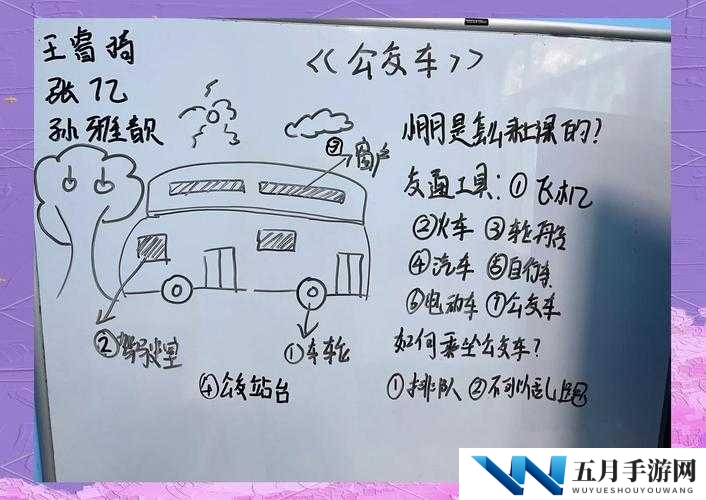 王睿琦
张
孙雅歆
《公交车》
小明是怎么来上课的?
③窗户
交通工具:①飞机
②火车 ③轮船
④汽车 ⑤自行车
⑥电动车 ⑦公交车
②驾驶室
①车轮
④公交站台
如何乘坐公交车?
①排队 ②不可以乱跑
五月手游网
WUYUESHOUYOUWANG